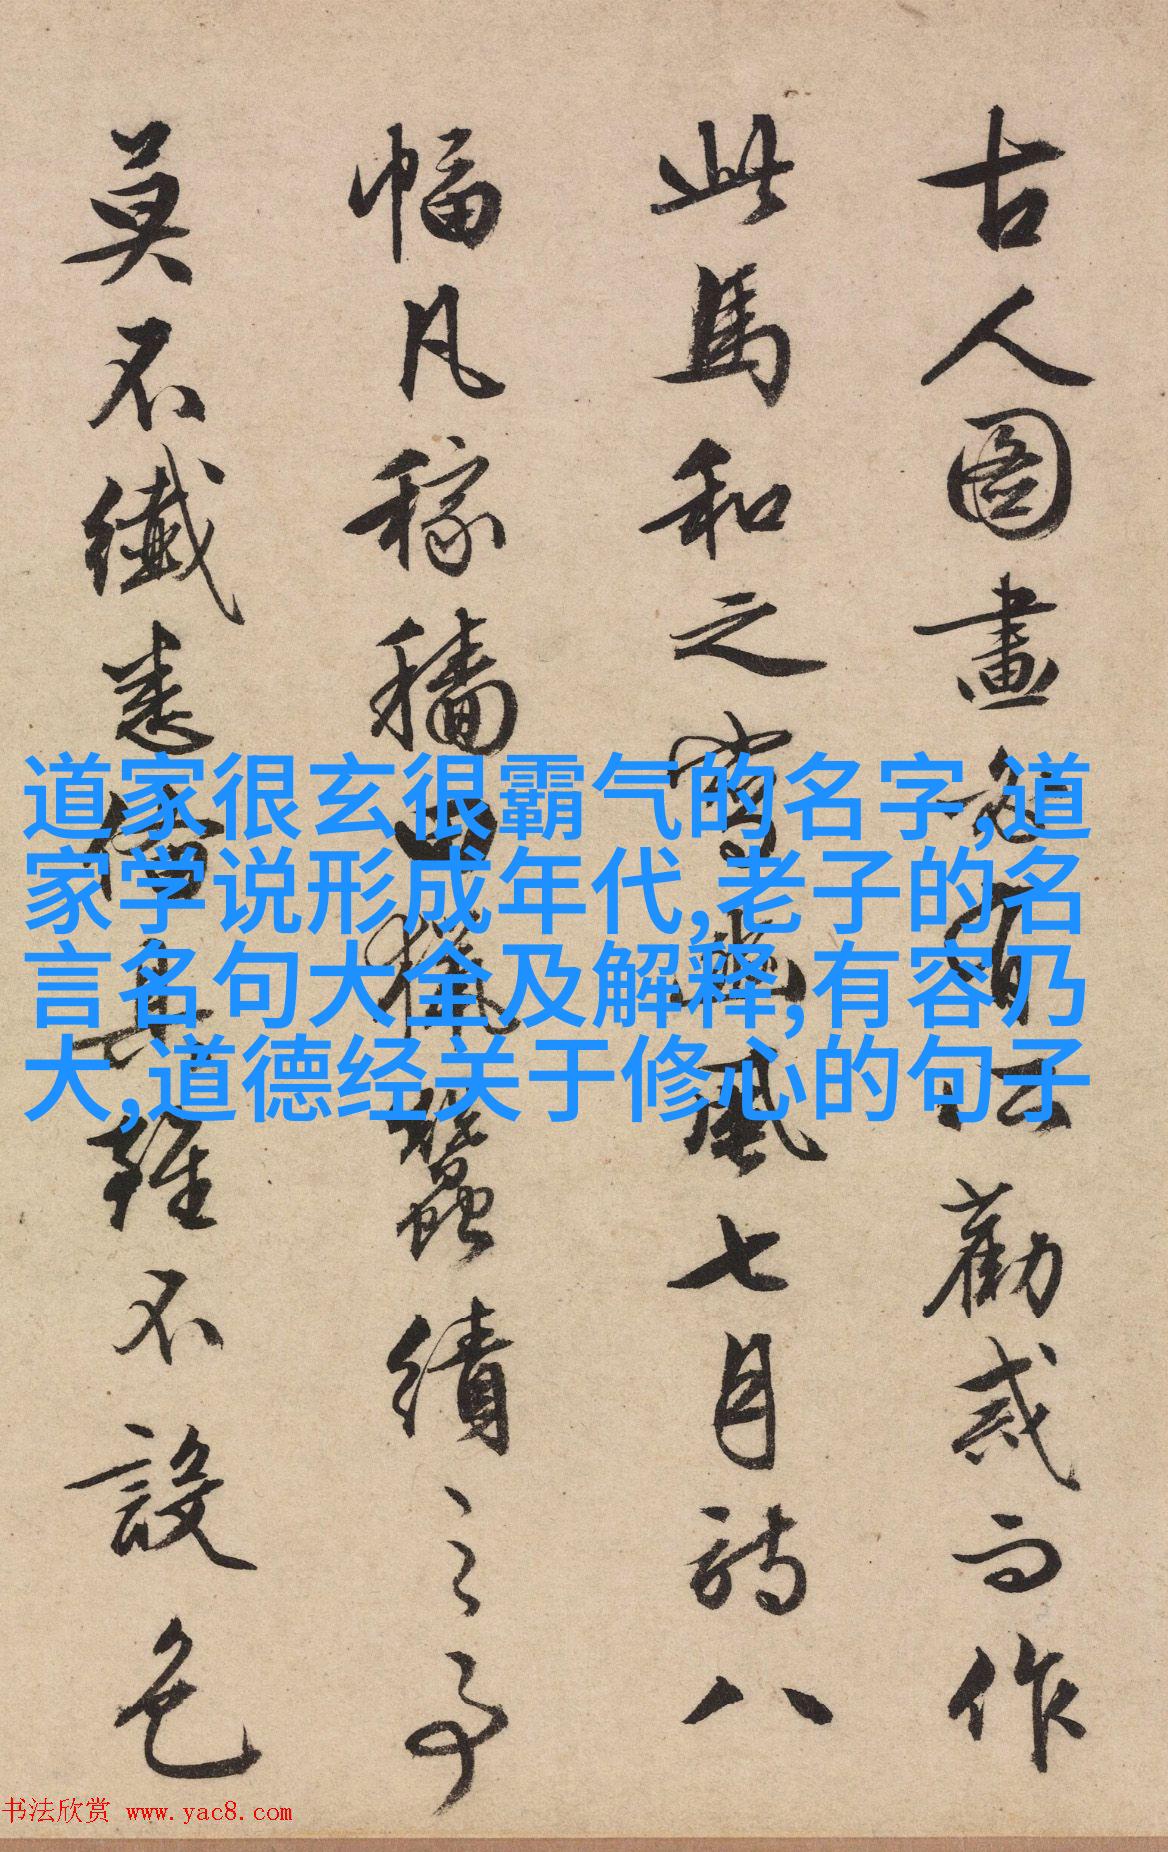 古人圖畫必有以勸戒而作
此馬和之寫豳風七月詩八
幅凡稼穡田獵蠶績之事
莫不纖悉備具雖不設色
道家很玄很霸气的名字,道
家学说形成年代,老子的名
言名句大全及解释,有容乃
大,道德经关于修心的句子
书法欣赏 www.yac8.com